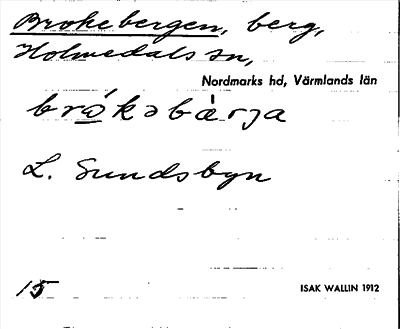 Brokebergen, berg,
Holmedals sn,
Nordmarks hd, Värmlands län
brø̀kəbæ̀rja
L. Sundsbyn
15
ISAK WALLIN 1912